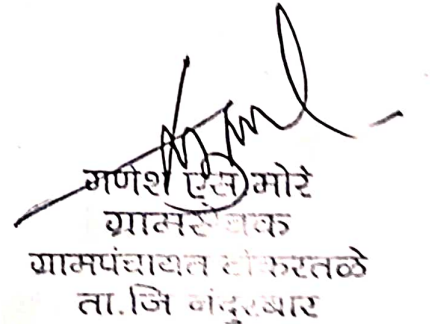 गणेश एस मोरे
ग्रामसेवक
ग्रामपंचायत टोकरतळे
ता.जि नंदुरबार